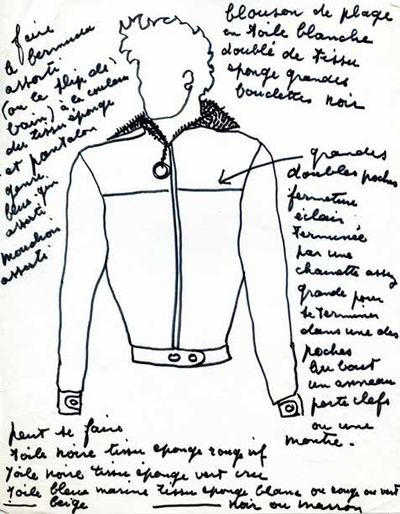 blouson de plage
en toile blanche
doublé de tissu
éponge grandes
bouclettes noir
faire
le bermuda
assorti
(ou le slip de
bain) à la couleur
du tissu éponge
et pantalon
genre
assorti
mouchoir
assorti
grandes
doubles poches
fermeture
éclair
terminée
par une
chainette assez
grande pour
se terminer
dans une des
poches
au bout
un anneau
porte clefs
ou une
montre.
peut se faire
toile noire tissu eponge rouge vif
toile noire tissu éponge vert cru
toile bleue marine tissu eponge blanc ou rouge ou vert
beige noir ou marron